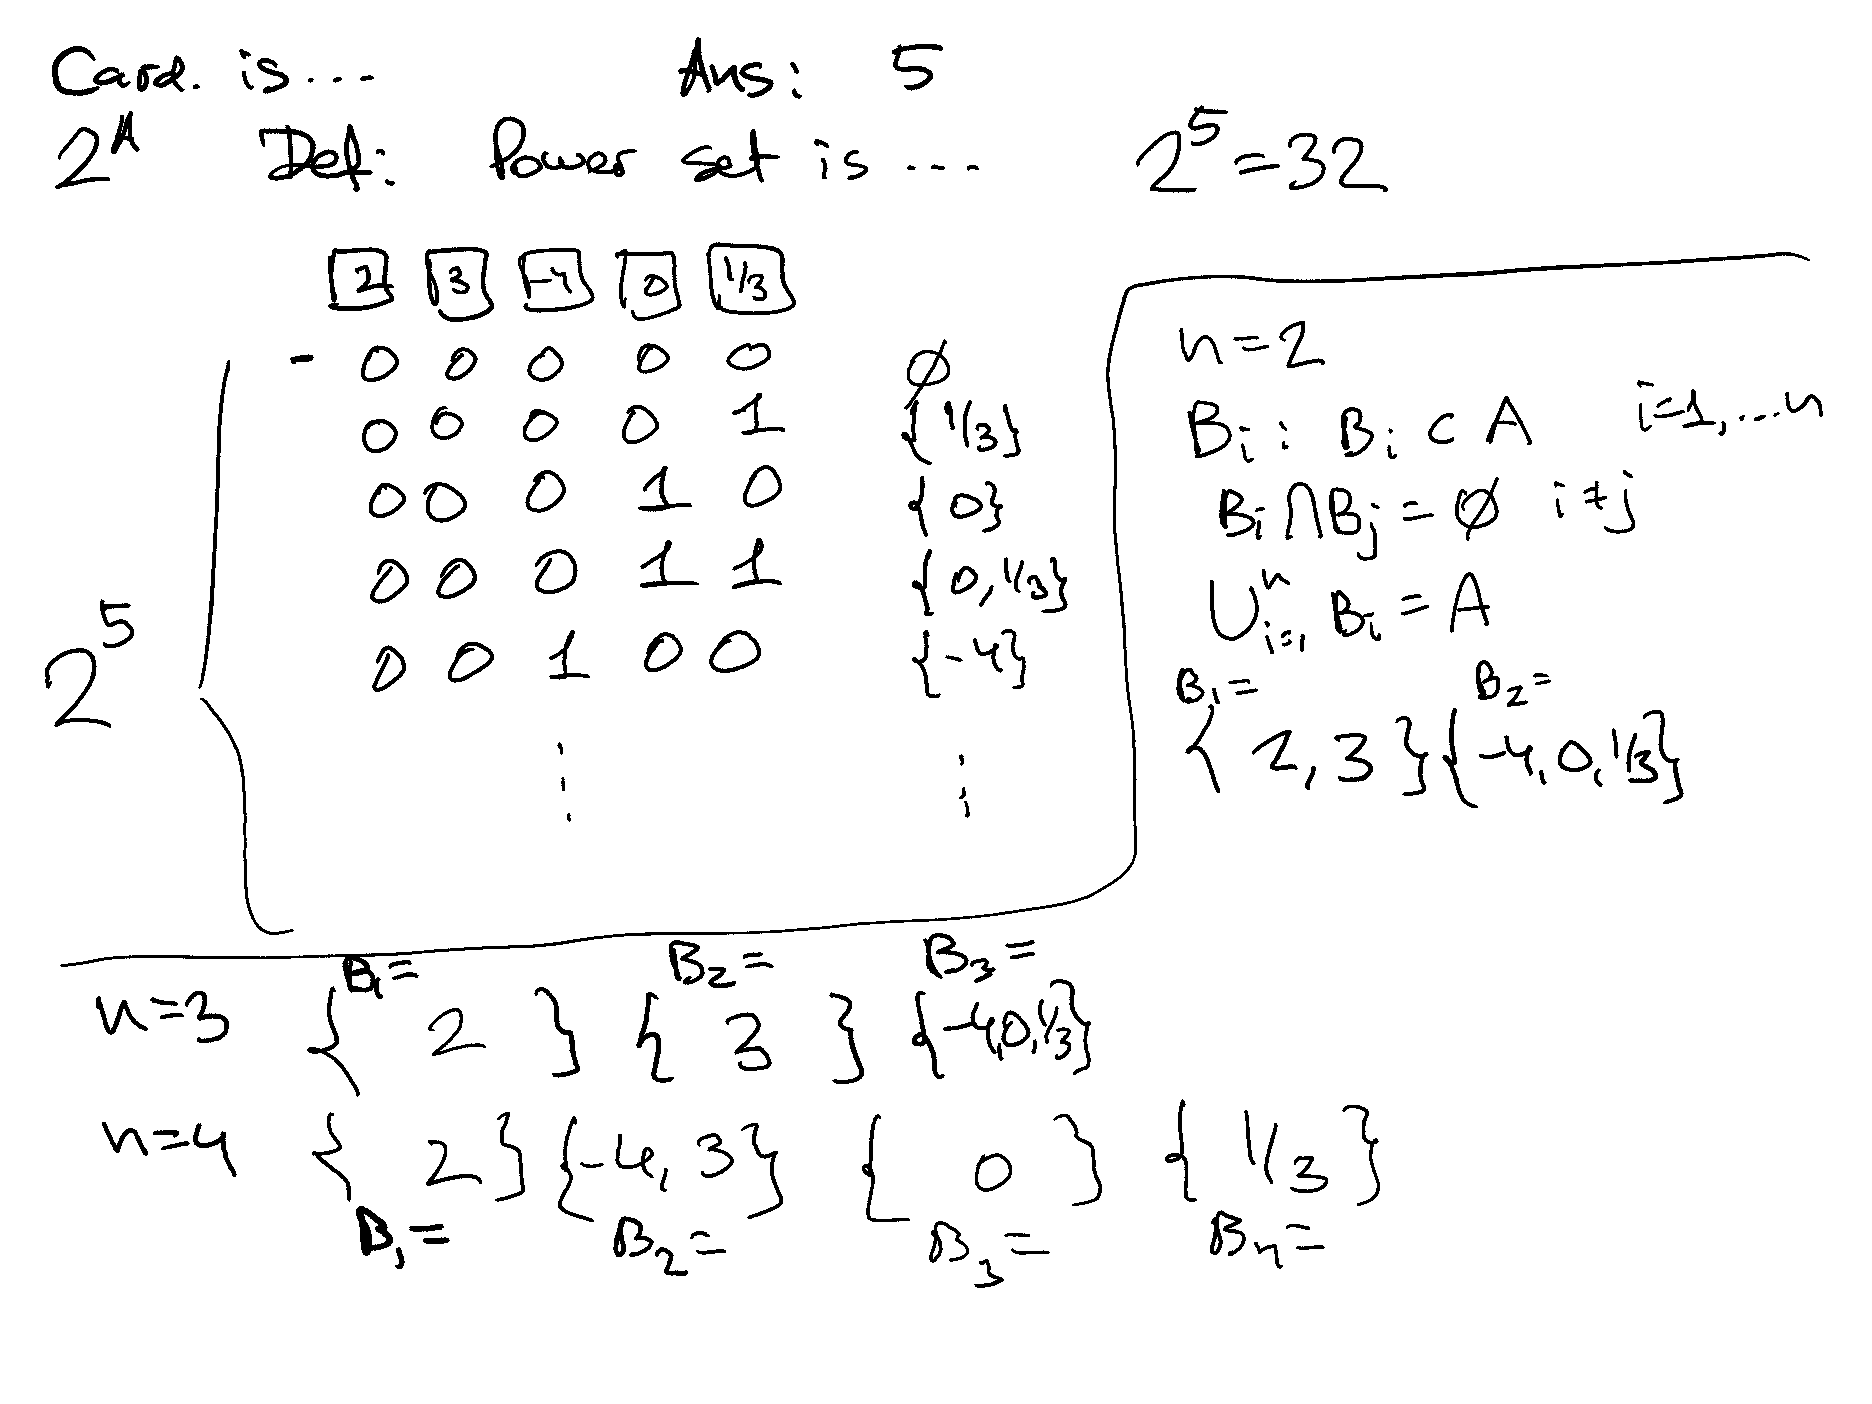 Card. is ... Ans: 5
2^A Def: Power set is ... 2^5 = 32
2 3 -4 0 1/3
- 0 0 0 0 0 ∅
0 0 0 0 1 {1/3}
0 0 0 1 0 {0}
0 0 0 1 1 {0, 1/3}
0 0 1 0 0 {-4}
⋮ ⋮
2^5
n=2
B_i : B_i ⊂ A i=1, ... n
B_i ∩ B_j = ∅ i ≠ j
∪_{i=1}^n B_i = A
B_1 = B_2 =
{ 2, 3 } {-4, 0, 1/3}
B_1 = B_2 = B_3 =
n=3 { 2 } { 3 } {-4,0,1/3}
n=4 { 2 } {-4, 3} { 0 } { 1/3 }
B_1 = B_2 = B_3 = B_4 =